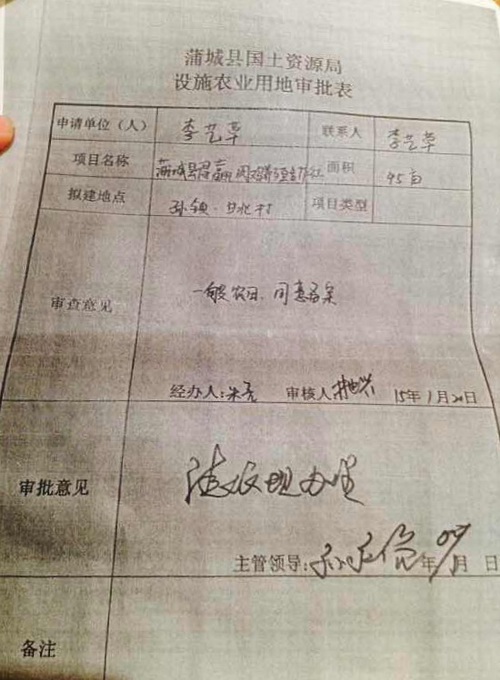 蒲城县国土资源局
设施农业用地审批表
申请单位（人） 李艺草 联系人 李艺草
项目名称 蒲城县 养殖专业合作社 面积 45亩
拟建地点 孙镇 甘北村 项目类型
审查意见 一般农田、同意备案
经办人: 朱亮 审核人 15年1月20日
审批意见 请按规办理
主管领导: 年 月 日
备注